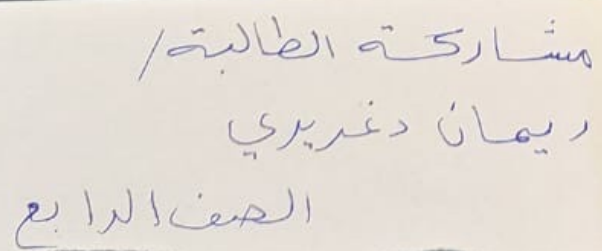 مشاركة الطالبة/
ريمان دغريري
الصف الرابع